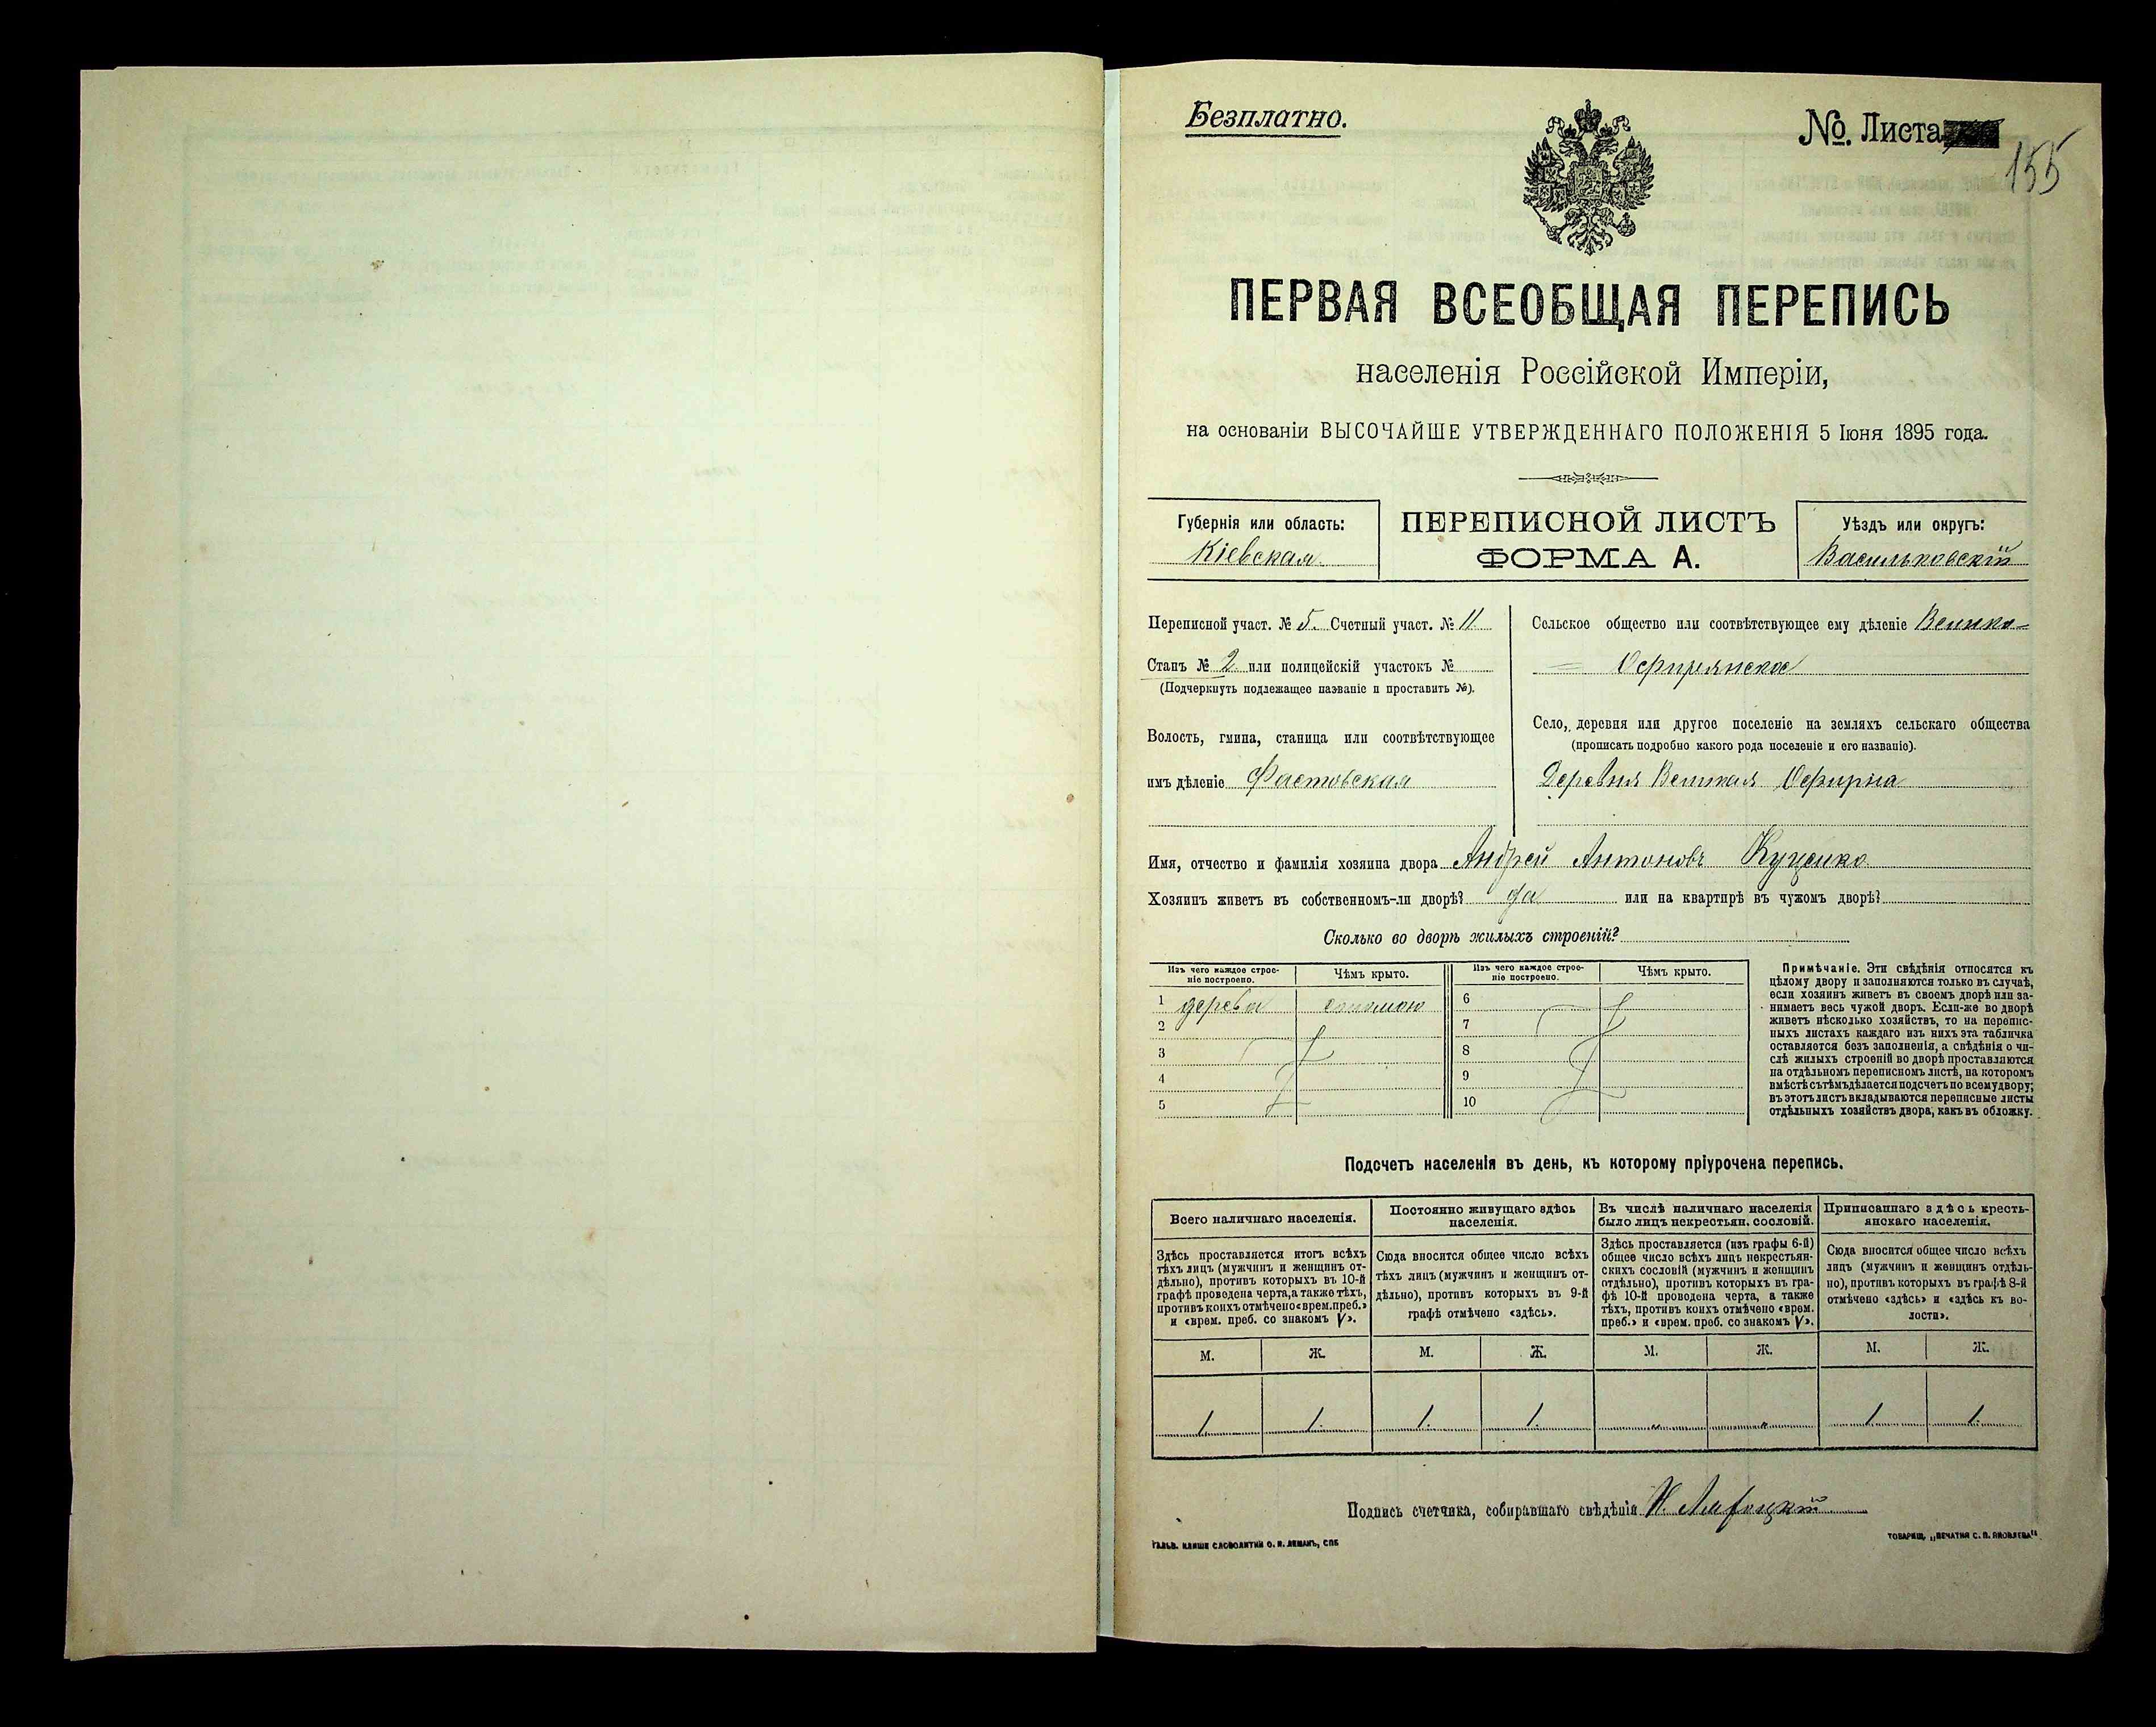 Безплатно.
№. Листа
155
ПЕРВАЯ ВСЕОБЩАЯ ПЕРЕПИСЬ
населенія Россійской Имперіи,
на основаніи ВЫСОЧАЙШЕ УТВЕРЖДЕННАГО ПОЛОЖЕНІЯ 5 Іюня 1895 года.
Губернія или область:
Кіевская
ПЕРЕПИСНОЙ ЛИСТЪ
ФОРМА А.
Уѣздъ или округъ:
Васильковскій
Переписной участ. № 5. Счетный участ. № 11
Станъ № 2 или полицейскій участокъ №
(Подчеркнуть подлежащее названіе и проставить №).
Волость, гмина, станица или соотвѣтствующее
имъ дѣленіе Фастовская
Сельское общество или соотвѣтствующее ему дѣленіе Велико-
Офирнянское
Село, деревня или другое поселеніе на земляхъ сельскаго общества
(прописать подробно какого рода поселеніе и его названіе).
Деревня Великая Офирна
Имя, отчество и фамилія хозяина двора Андрей Антоновъ Куценко
Хозяинъ живетъ въ собственномъ-ли дворѣ? да или на квартирѣ въ чужомъ дворѣ?
Сколько во дворѣ жилыхъ строеній?
Изъ чего каждое строе-
ніе построено.
Чѣмъ крыто.
Изъ чего каждое строе-
ніе построено.
Чѣмъ крыто.
1 дерева соломою 6
2 7
3 8
4 9
5 10
Примѣчаніе. Эти свѣдѣнія относятся къ
цѣлому двору и заполняются только въ случаѣ,
если хозяинъ живетъ въ своемъ дворѣ или за-
нимаетъ весь чужой дворъ. Если-же во дворѣ
живетъ нѣсколько хозяйствъ, то на перепис-
ныхъ листахъ каждаго изъ нихъ эта табличка
оставляется безъ заполненія, а свѣдѣнія о чи-
слѣ жилыхъ строеній во дворѣ проставляются
на отдѣльномъ переписномъ листѣ, на которомъ
вмѣстѣ съ тѣмъ дѣлается подсчетъ по всему двору;
въ этотъ листъ вкладываются переписные листы
отдѣльныхъ хозяйствъ двора, какъ въ обложку.
Подсчетъ населенія въ день, къ которому пріурочена перепись.
Всего наличнаго населенія.
Здѣсь проставляется итогъ всѣхъ
тѣхъ лицъ (мужчинъ и женщинъ от-
дѣльно), противъ которыхъ въ 10-й
графѣ проведена черта, а также тѣхъ,
противъ коихъ отмѣчено «врем. преб.»
и «врем. преб. со знакомъ V».
Постоянно живущаго здѣсь
населенія.
Сюда вносится общее число всѣхъ
тѣхъ лицъ (мужчинъ и женщинъ от-
дѣльно), противъ которыхъ въ 9-й
графѣ отмѣчено «здѣсь».
Въ числѣ наличнаго населенія
было лицъ некрестьян. сословій.
Здѣсь проставляется (изъ графы 6-й)
общее число всѣхъ лицъ некрестьян-
скихъ сословій (мужчинъ и женщинъ
отдѣльно), противъ которыхъ въ гра-
фѣ 10-й проведена черта, а также
тѣхъ, противъ коихъ отмѣчено «врем.
преб.» и «врем. преб. со знакомъ V».
Приписаннаго здѣсь кресть-
янскаго населенія.
Сюда вносится общее число всѣхъ
лицъ (мужчинъ и женщинъ отдѣль-
но), противъ которыхъ въ графѣ 8-й
отмѣчено «здѣсь» и «здѣсь къ во-
лости».
М. Ж. М. Ж. М. Ж. М. Ж.
1 1. 1. 1. " " 1 1.
Подпись счетчика, собиравшаго свѣдѣнія
ГАЛЬВ. КЛИШЕ СЛОВОЛИТНИ О. И. ЛЕМАНЪ, СПБ
ТОВАРИЩ. „ПЕЧАТНЯ С. П. ЯКОВЛЕВА"